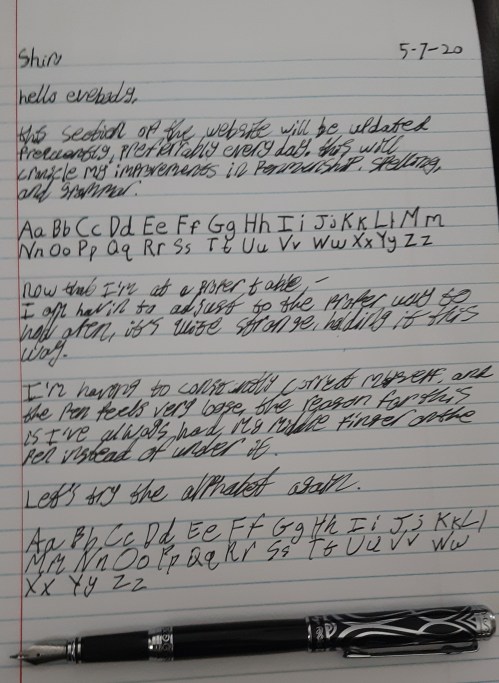 Shin 5-7-20
hello evebady,
this section of the website will be updated
preferrably every day. this will
my improvements in Penmenship, spelling,
and grammar.
Aa Bb Cc Dd Ee Ff Gg Hh Ii Jj Kk Ll Mm
Nn Oo Pp Qq Rr Ss Tt Uu Vv Ww Xx Yy Zz
now that I'm at a table,
I am havin to adjust to the proper way to
pen, it's quite strange, holding it this
way.
I'm having to constantly correct myself, and
the pen feels very loose, the reason for this
is I've always had my middle finger on the
pen instead of under it.
Let's try the alphabet again.
Aa Bb Cc Dd Ee Ff Gg Hh Ii Jj Kk Ll
Mm Nn Oo Pp Qq Rr Ss Tt Uu Vv Ww
Xx Yy Zz